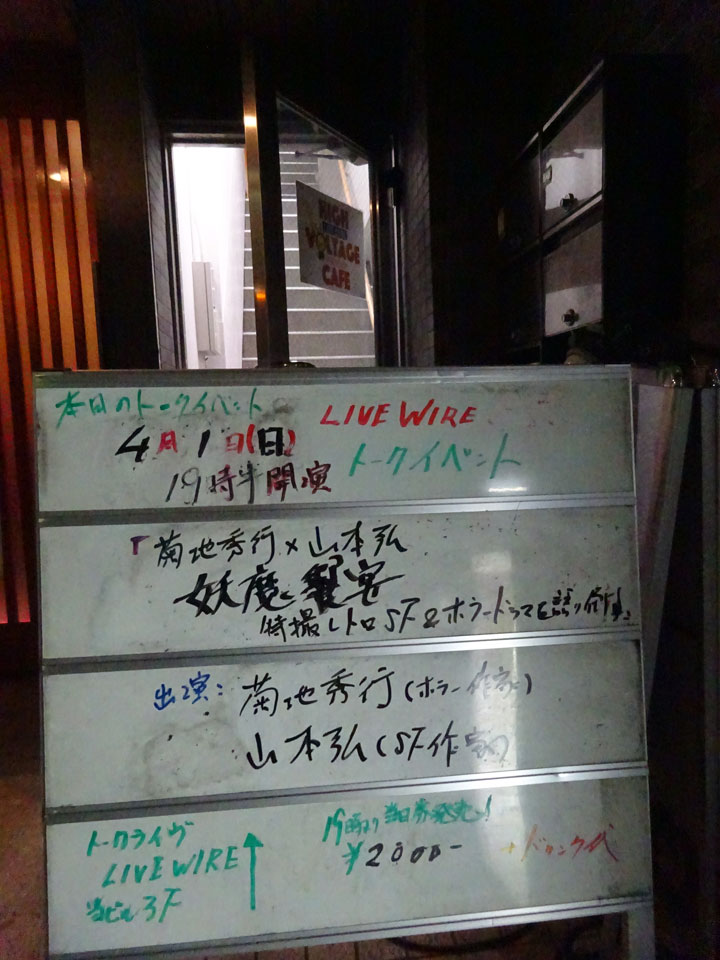 HIGH
VOLTAGE
CAFE
本日のトークイベント
LIVE WIRE
4月1日(日)
トークイベント
19時半開演
「菊地秀行×山本弘
妖魔饗宴
特撮レトロSF&ホラードラマを語り倒す」
出演: 菊地秀行(ホラー作家)
山本弘(SF作家)
トークライヴ
LIVE WIRE
当ビル3F
19時より当日券発売!
¥2000-
+ドリンク代